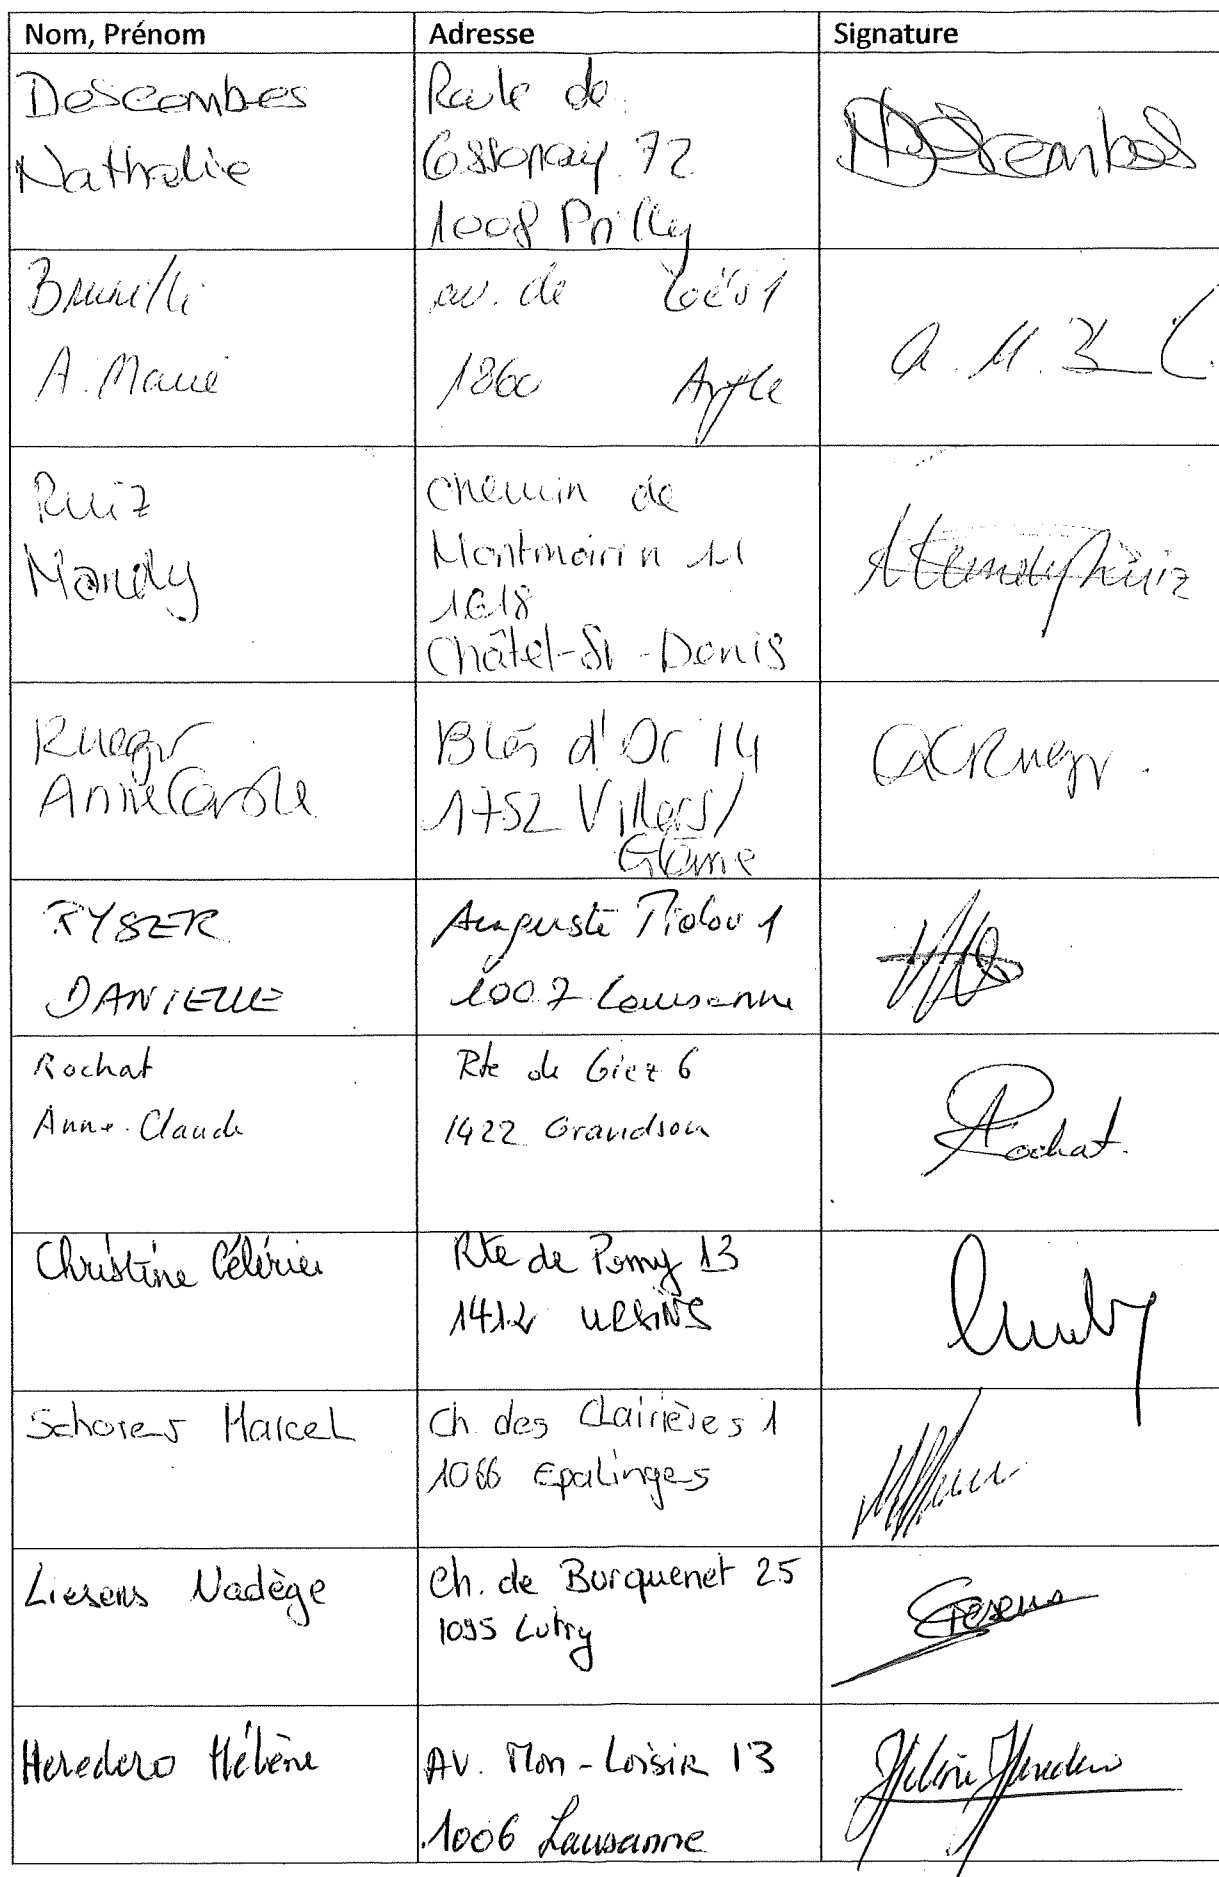 Nom, Prénom Adresse Signature
Descombes
Nathalie
Route de
Cossonay 72
1008 Prilly
NDescombes
Brunelli
A. Marie
av. de Loës 1
1860 Aigle
A. M. B
Ruiz
Mandy
Chemin de
Montmoirin 11
1618
Châtel-St-Denis
Mandy Ruiz
Ruegr
Anne Carole
Blés d'Or 14
1752 Villars/
Glâne
ACRuegr.
RYSER
DANIELLE
Auguste Pidou 1
1007 Lausanne
Rochat
Anne-Claude
Rte de Giez 6
1422 Grandson
ARochat.
Christine Célérier
Rte de Pomy 13
1412 URSINS
Schorer Marcel
Ch. des Clairières 1
1066 Epalinges
Liesens Nadège
Ch. de Burquenet 25
1095 Lutry
Liesens
Heredero Hélène
AV. Mon-Loisir 13
1006 Lausanne
Hélène Heredero